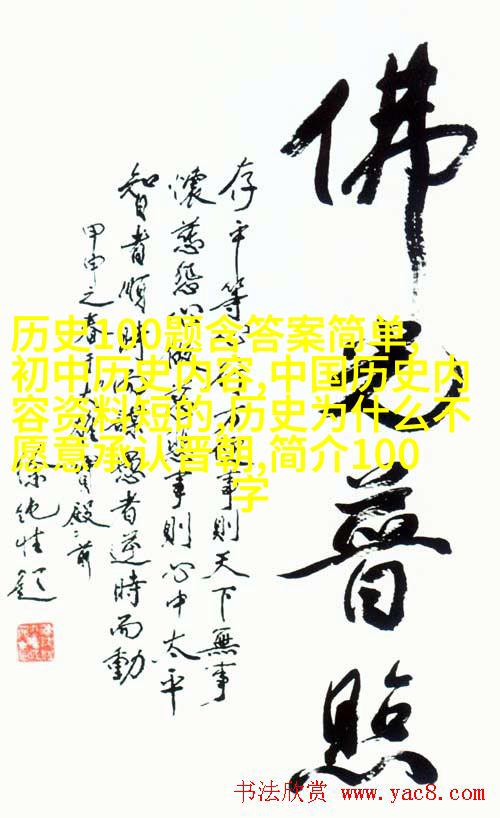 佛光普照
存平等心行方便事則天下無事
懷慈悲心做慈悲事則心中太平
智者順時而謀愚者逆時而動
甲申之春于大雄寶殿之前
历史100题含答案简单,
初中历史内容,中国历史内
容资料短的,历史为什么不
愿意承认晋朝,简介100
字
书法欣赏 www.yac8.com